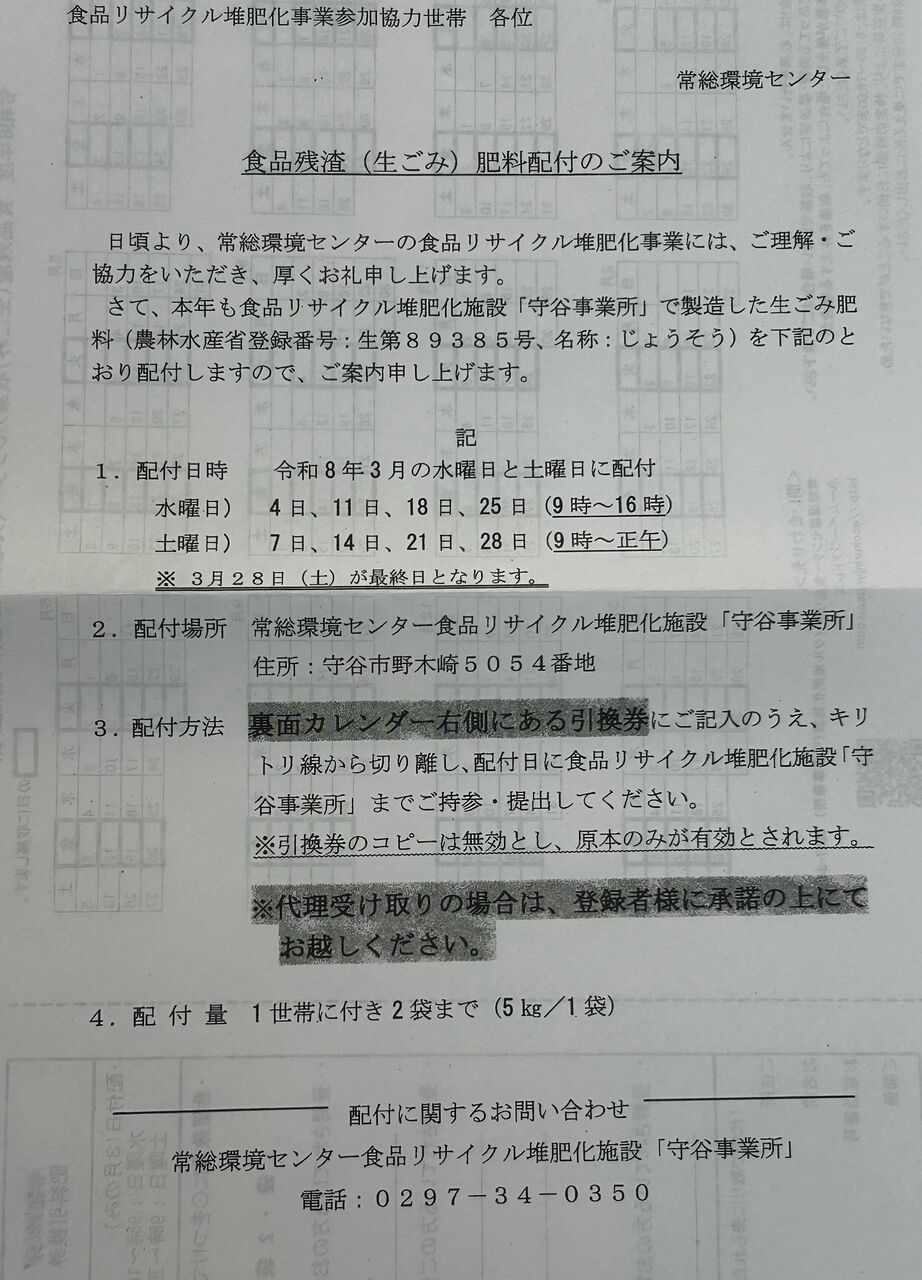 食品リサイクル堆肥化事業参加協力世帯　各位
常総環境センター
食品残渣（生ごみ）肥料配付のご案内
日頃より、常総環境センターの食品リサイクル堆肥化事業には、ご理解・ご
協力をいただき、厚くお礼申し上げます。
さて、本年も食品リサイクル堆肥化施設「守谷事業所」で製造した生ごみ肥
料（農林水産省登録番号：生第８９３８５号、名称：じょうそう）を下記のと
おり配付しますので、ご案内申し上げます。
記
１．配付日時　令和８年３月の水曜日と土曜日に配付
水曜日）　4 日、11 日、18 日、25 日（9 時～16 時）
土曜日）　7 日、14 日、21 日、28 日（9 時～正午）
※　３月２８日（土）が最終日となります。
２．配付場所　常総環境センター食品リサイクル堆肥化施設「守谷事業所」
住所：守谷市野木崎５０５４番地
３．配付方法　裏面カレンダー右側にある引換券にご記入のうえ、キリ
トリ線から切り離し、配付日に食品リサイクル堆肥化施設「守
谷事業所」までご持参・提出してください。
※引換券のコピーは無効とし、原本のみが有効とされます。
※代理受け取りの場合は、登録者様に承諾の上にて
お越しください。
４．配 付 量　1 世帯に付き 2 袋まで（5 ㎏／1 袋）
配付に関するお問い合わせ
常総環境センター食品リサイクル堆肥化施設「守谷事業所」
電話：０２９７－３４－０３５０